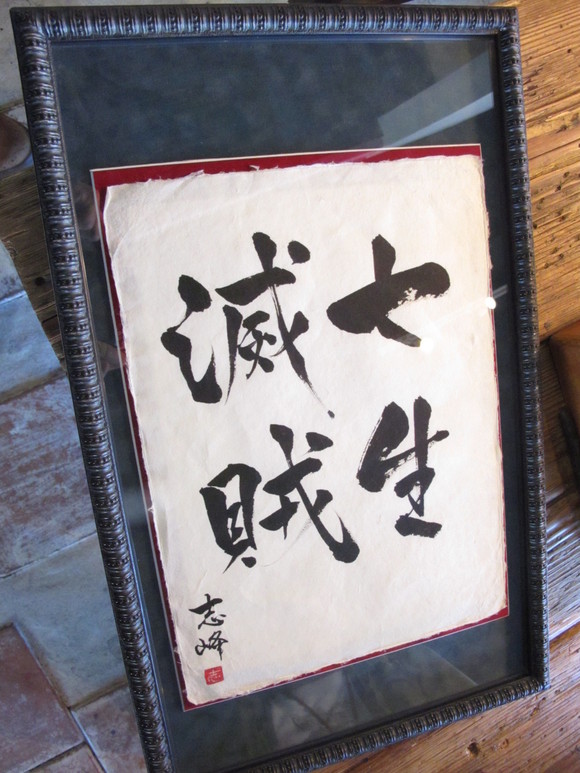 七生
滅賊
志峰
志